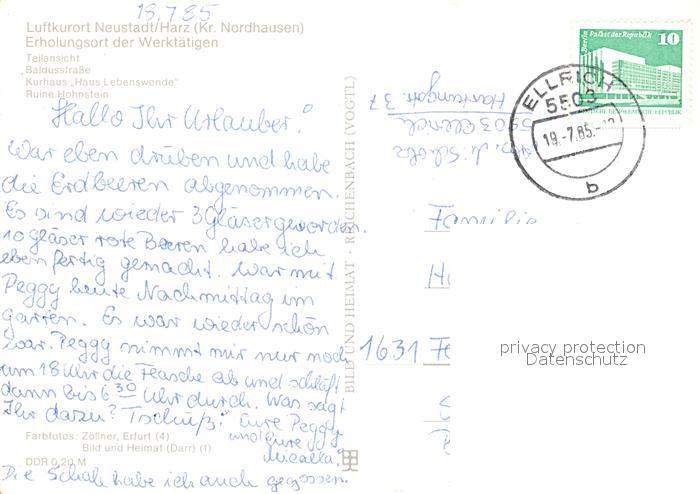 18.7.85
Luftkurort Neustadt/Harz (Kr. Nordhausen)
Erholungsort der Werktätigen
Teilansicht
„Baldusstraße
Kurhaus „Haus Lebenswende“
Ruine Hohnstein
Hallo Ihr Urlauber!
War eben drüben und habe
die Erdbeeren abgenommen.
Es sind wieder 3 Gläser geworden.
10 Gläser rote Beeren habe ich
eben fertig gemacht. War mit
Peggy heute Nachmittag im
Garten. Es war wieder schön
war. Peggy nimmt mir nur noch
um 18 Uhr die Flasche ab und schläft
dann bis 6 30 Uhr durch. Was sagt
Ihr dazu? Tschüß! Eure Peggy
und Eure
Die Schale habe ich auch gegossen.
Farbfotos: Zöllner, Erfurt (4)
Bild und Heimat (Darr) (1)
DDR 0,20 M
BILD UND HEIMAT · REICHENBACH (VOGTL)
5903 Ellrich
37
Berlin, Palast der Republik
10
DEUTSCHE DEMOKRATISCHE REPUBLIK
ELLRICH
5503
19.-7.85.
b
Familie
H
1631 Fe
privacy protection
Datenschutz